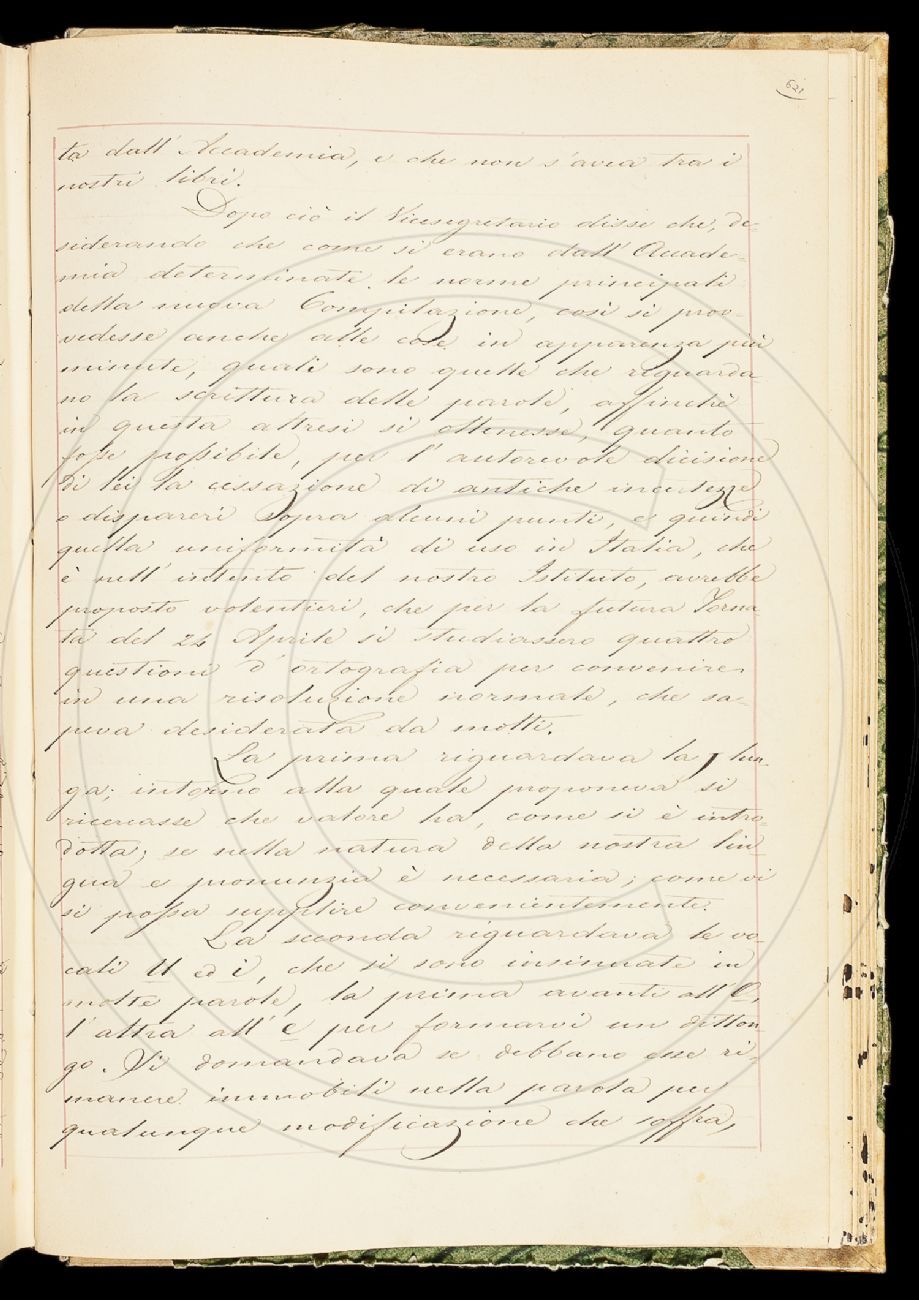 621
ta dall' Accademia, e che non s'avea tra i
nostri libri.
Dopo ciò il Vicesegretario disse che, de-
siderando che come si erano dall' Accade-
mia determinate le norme principali
della nuova Compilazione, così si prov-
vedesse anche alle cose in apparenza più
minute, quali sono quelle che riguarda-
no la scrittura delle parole, affinchè
in questa altresì si ottenesse, quanto
fosse possibile, per l' autorevole dicisione
di lei la cessazione di antiche incertezze
e dispareri sopra alcuni punti, e quindi
quella uniformità di uso in Italia, che
è nell' intento del nostro Istituto, avrebbe
proposto volentieri, che per la futura Torna
ta del 24 Aprile si studiassero quattro
questioni d' ortografia per convenire
in una risoluzione normale, che sa-
peva desiderata da molti.
La prima riguardava la j lun-
ga; intorno alla quale proponeva si
ricercasse che valore ha, come si è intro-
dotta; se nella natura della nostra lin-
gua e pronunzia è necessaria; come vi
si possa supplire convenientemente.
La seconda riguardava le vo-
cali U ed i, che si sono insinuate in
molte parole, la prima avanti all' O,
l' altra all' e per formarvi un ditton
go. Si domandava se debbano esse ri-
manere immobili nella parola per
qualunque modificazione che soffra,